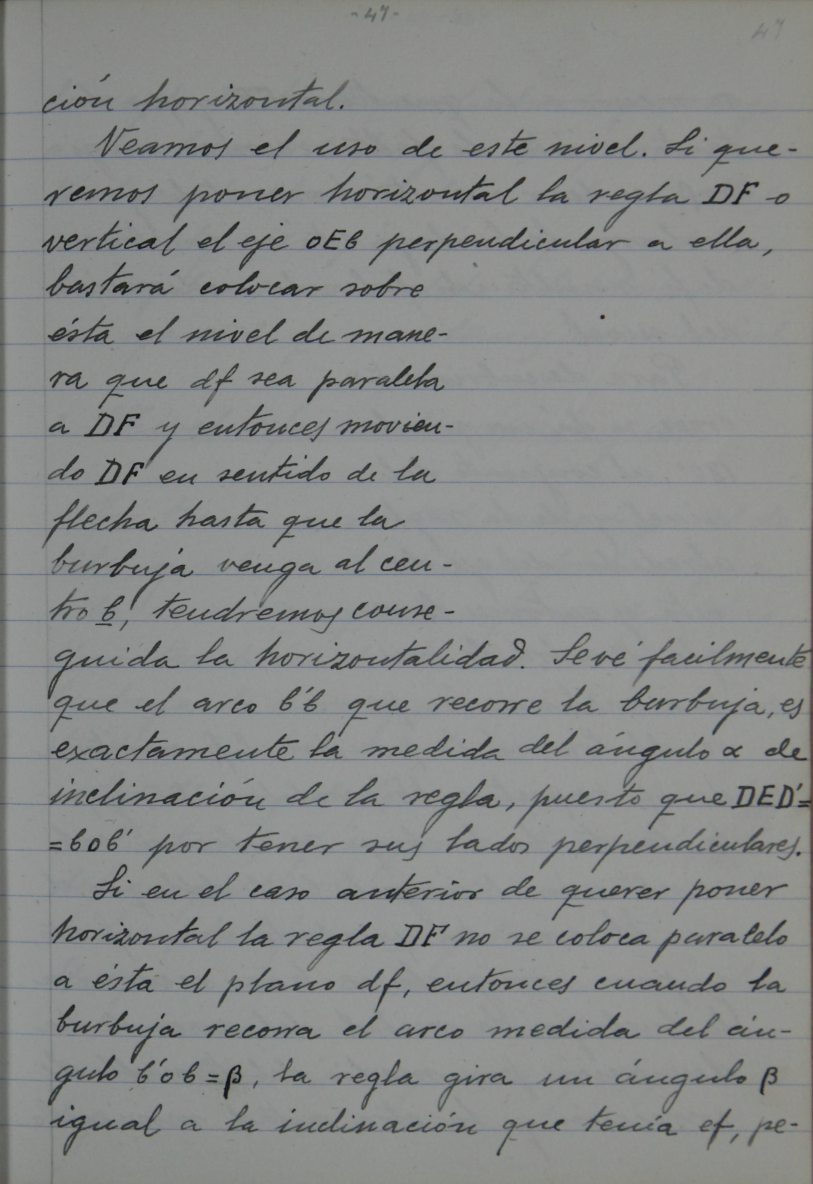 -47-
47
ción horizontal.
Veamos el uso de este nivel. Si que-
remos poner horizontal la regla DF o
vertical el eje oEb perpendicular a ella,
bastará colocar sobre
ésta el nivel de mane-
ra que df sea paralela
a DF y entonces movien-
do DF en sentido de la
flecha hasta que la
burbuja venga al cen-
tro b, tendremos conse-
guida la horizontalidad. Se vé facilmente
que el arco b'b que recorre la burbuja, es
exactamente la medida del ángulo α de
inclinación de la regla, puesto que DED'=
=bob' por tener sus lados perpendiculares.
Si en el caso anterior de querer poner
horizontal la regla DF no se coloca paralelo
a ésta el plano df, entonces cuando la
burbuja recorra el arco medida del án-
gulo b'ob=β, la regla gira un ángulo β
igual a la inclinación que tenía ef, pe-